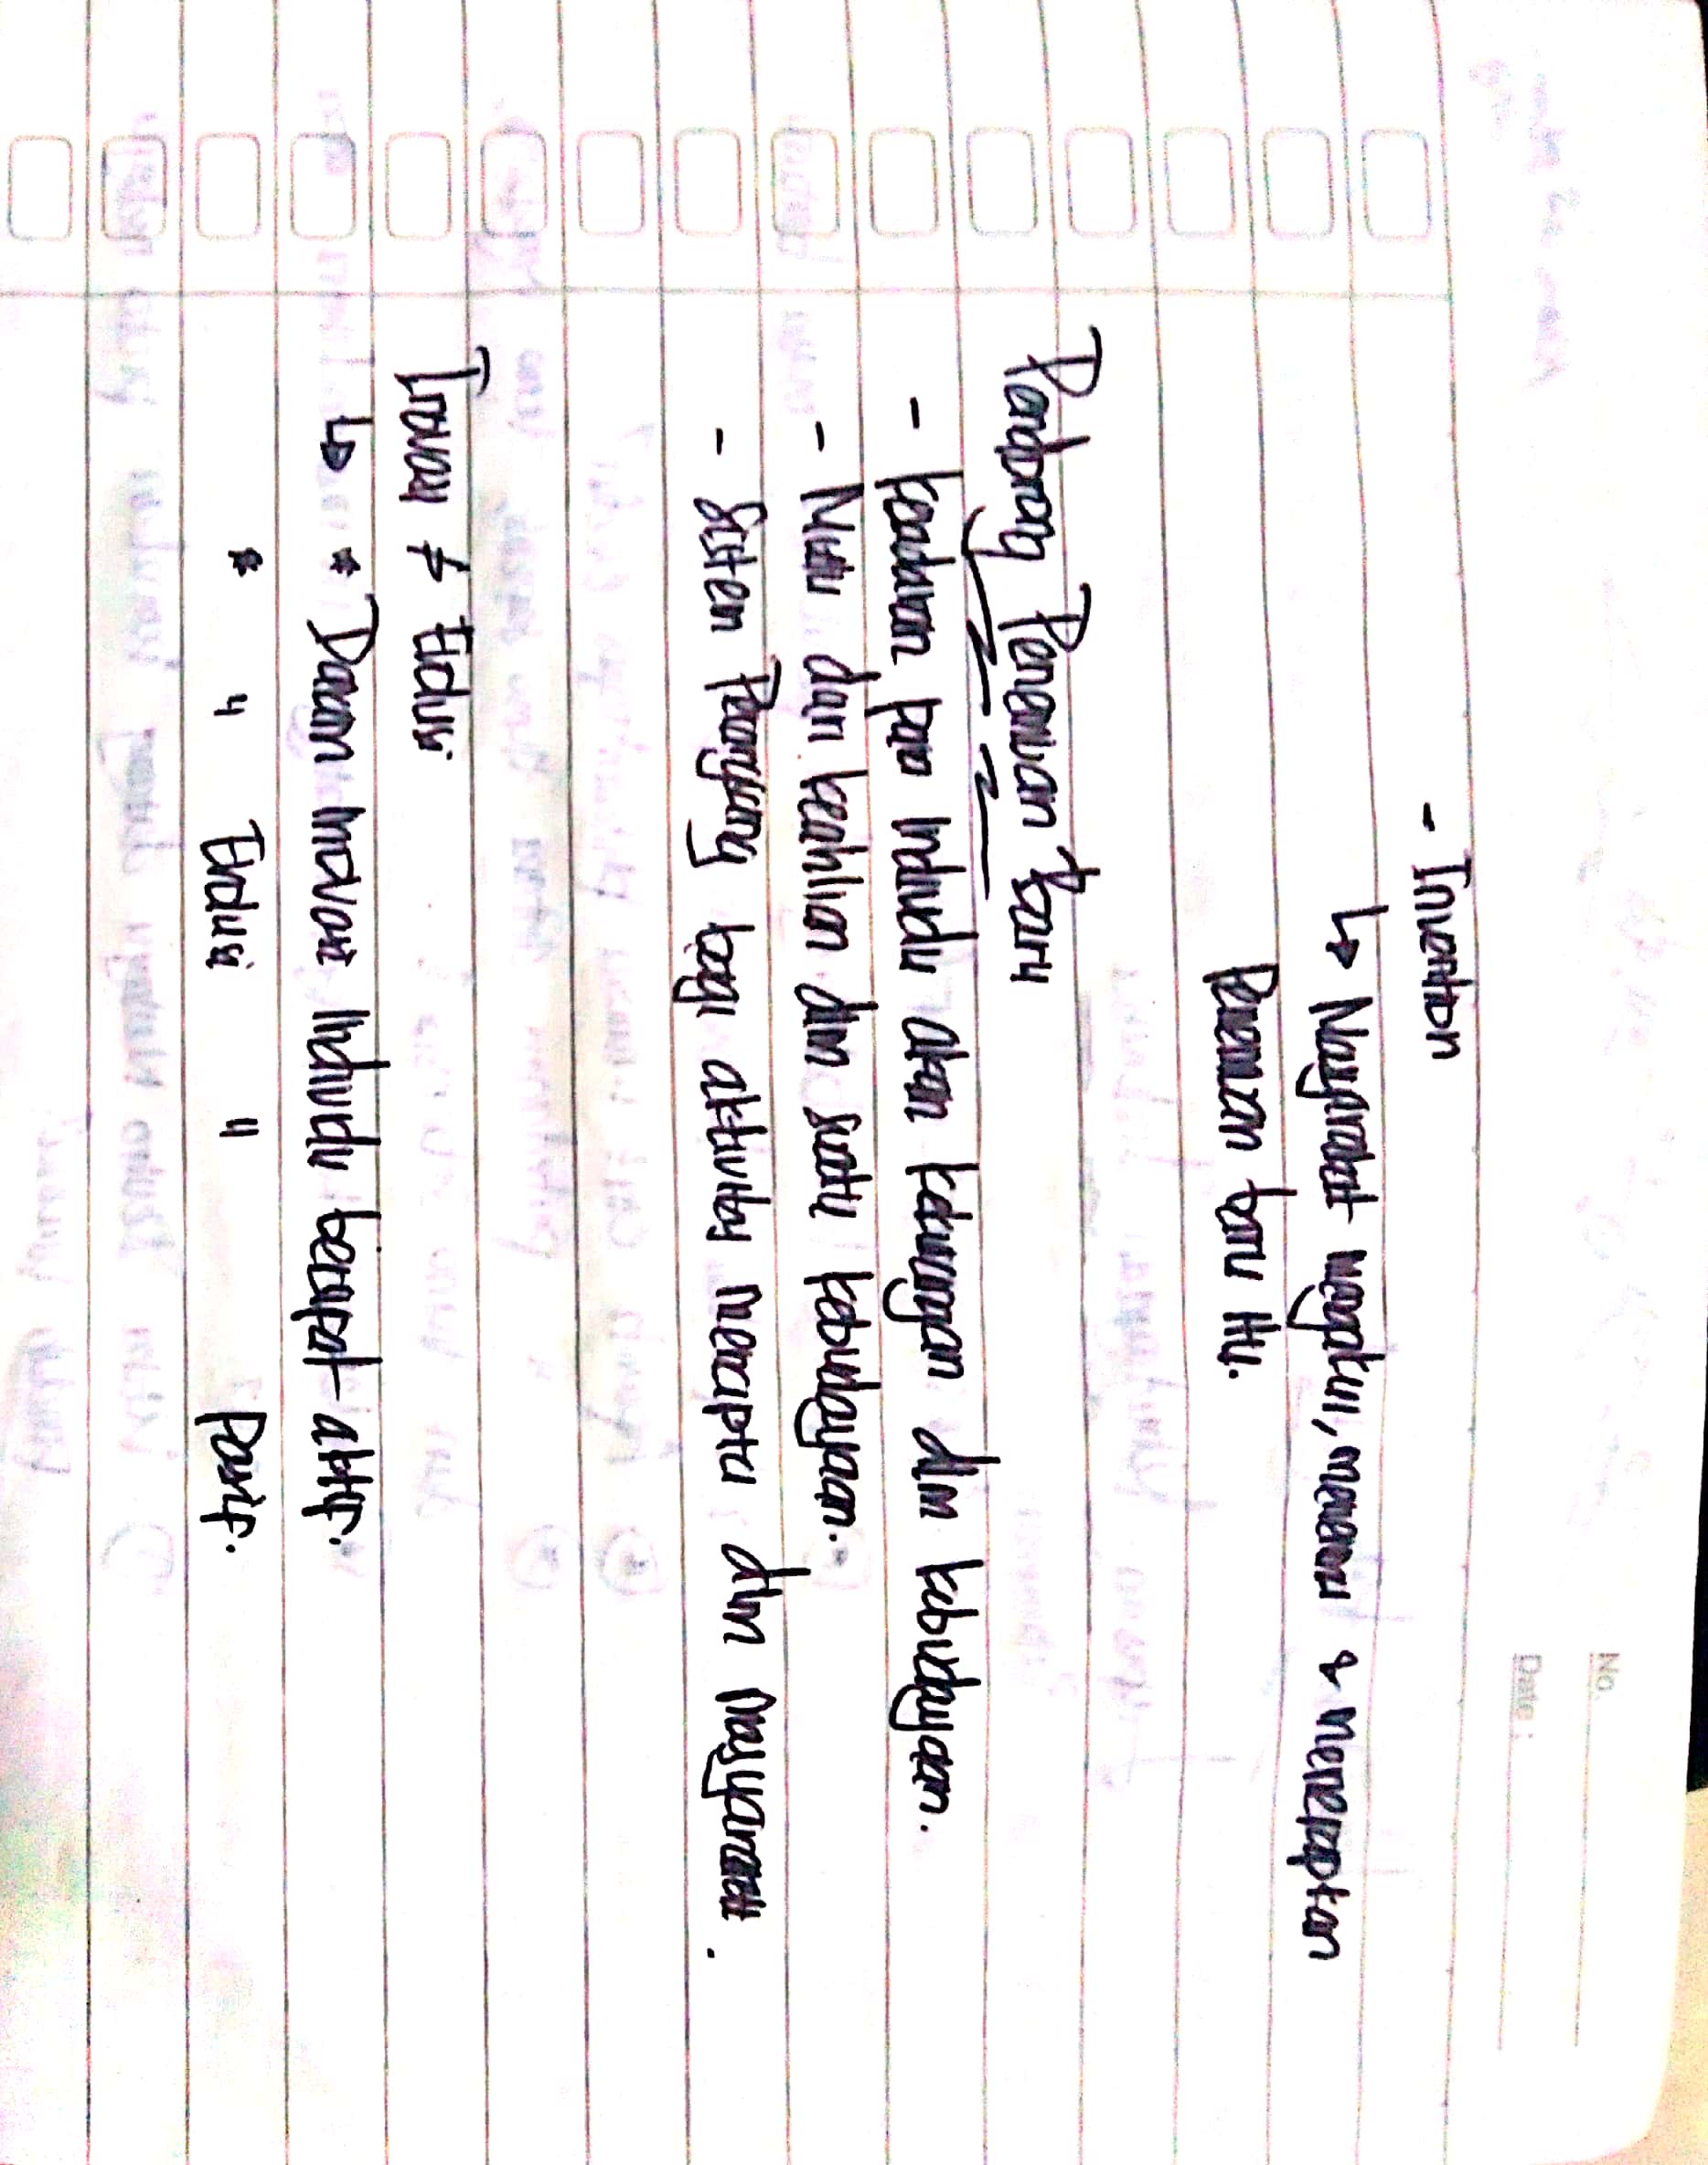 No.
Date :
- Invention
↳ Masyarakat mengakui, menerima & menerapkan
Penemuan baru itu.
Pendorong Penemuan Baru
- keadaran para Individu akan kekurangan dlm kebudayaan.
- Mutu dari keahlian dlm suatu kebudayaan.
- Sistem Perangsang bagi aktivitas mencipta dlm masyarakat.
Inovasi ≠ Evolusi
↳ * Dalam Inovasi Individu bersifat aktif.
* " Evolusi " Pasif.